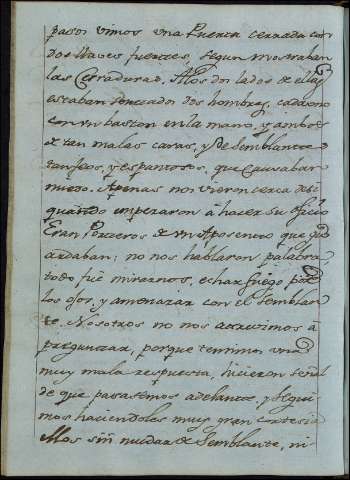 pasos vimos vna Puerta cerrada con
dos llaves fuertes, segun mostraban
las Cerraduras. A los dos lados de ella
estaban sentados dos hombres, cada vno
con vn baston en la mano, y ambos
de tan malas caras, y de semblantes
tan feos, y espantosos, que Causaban
miedo. Apenas nos vieron cerca de si
quando empezaron à hacer su oficio
Eran Porteros de vn Aposento que gu
ardaban; no nos hablaron palabra
todo fuè mirarnos, echar fuego por
los ojos, y amenazar con el semblan-
te. Nosotros no nos atrevimos à
preguntar, porque temimos vna
muy mala respuesta, hicieron señal
de que pasasemos adelante, y segui-
mos haciendoles muy gran cortesia
Mas sin mudar de semblante, ni